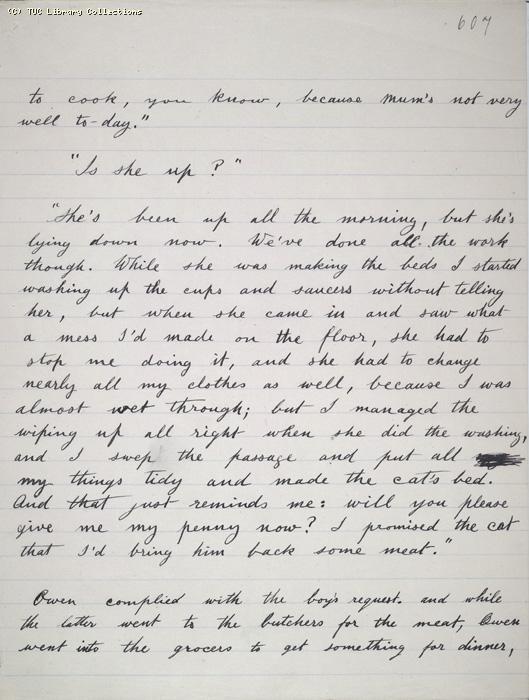 (C) TUC Library Collections
607
to cook, you know, because mum's not very
well to-day."
"Is she up?"
"She's been up all the morning, but she's
lying down now. We've done all the work
though. While she was making the beds I started
washing up the cups and saucers without telling
her, but when she came in and saw what
a mess I'd made on the floor, she had to
stop me doing it, and she had to change
nearly all my clothes as well, because I was
almost wet through; but I managed the
wiping up all right when she did the washing,
and I swep the passage and put all
my things tidy and made the cat's bed.
And that just reminds me: will you please
give me my penny now? I promised the cat
that I'd bring him back some meat."
Owen complied with the boy's request. and while
the latter went to the butchers for the meat, Owen
went into the grocers to get something for dinner,